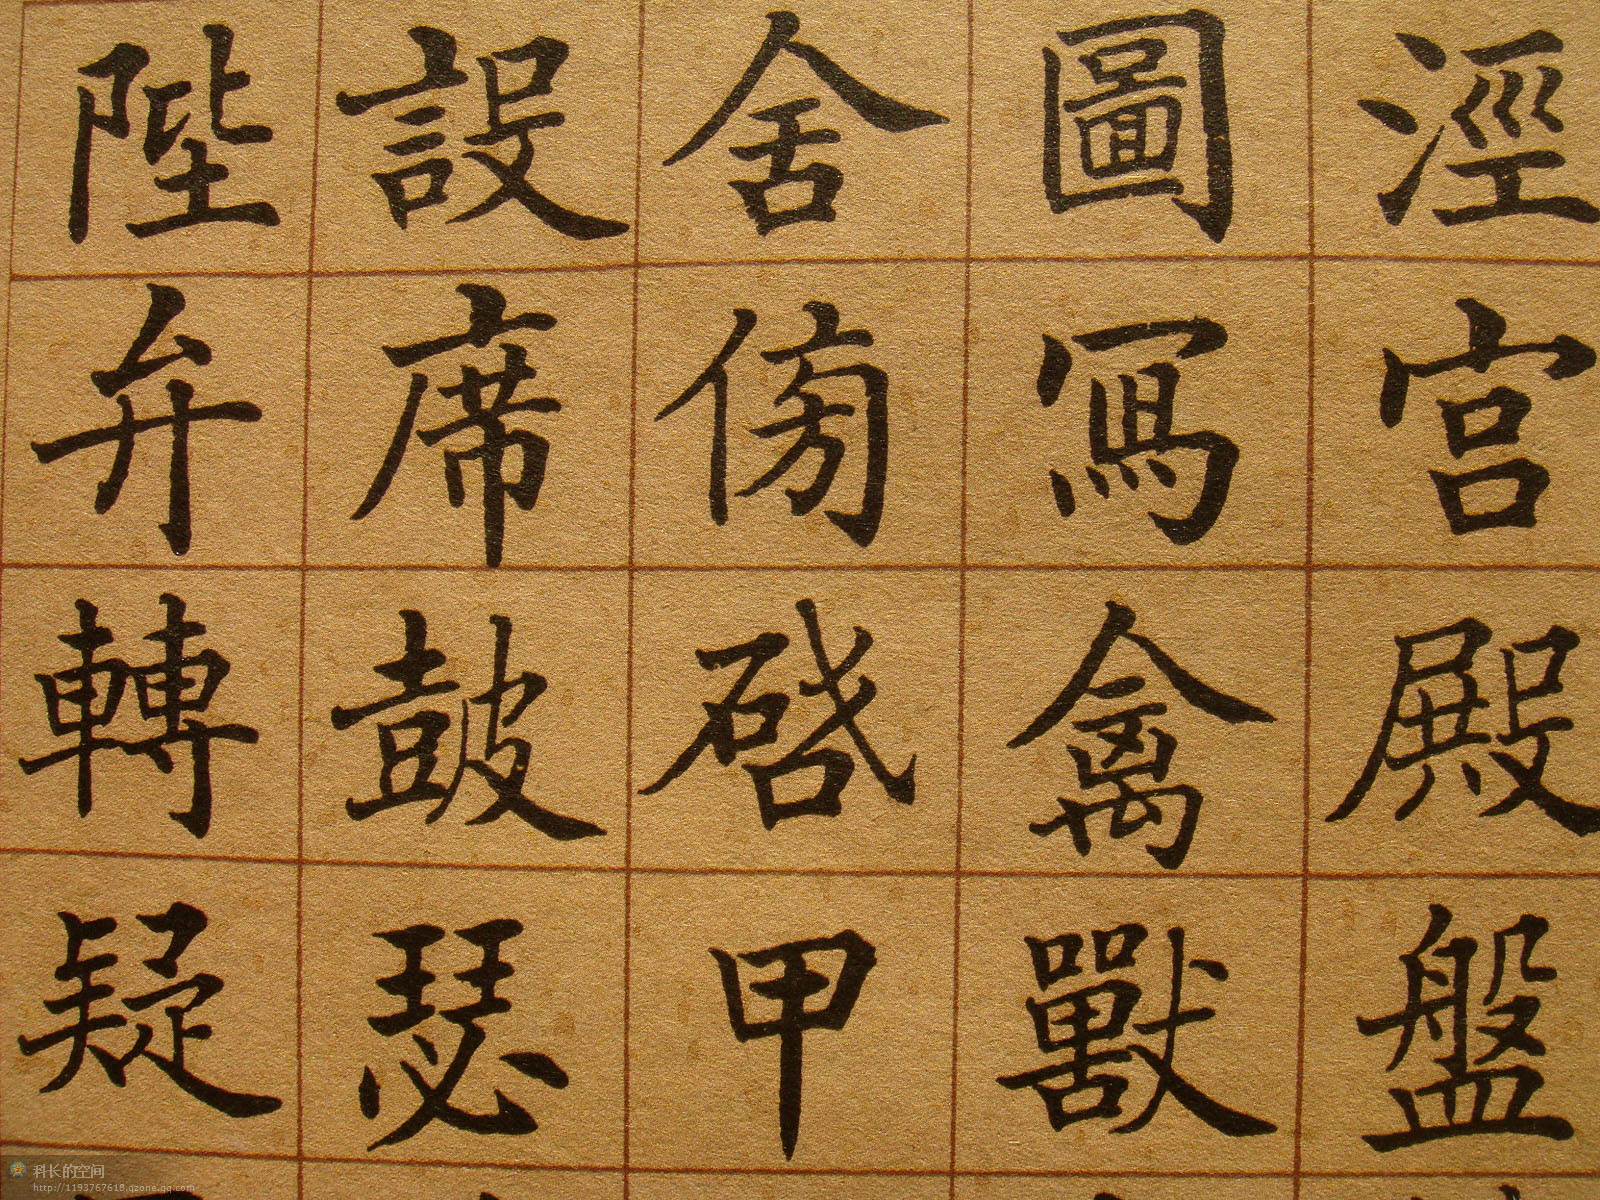 涇宮殿盤
圖寫禽獸
舍傍啓甲
設席皷瑟
陛弁轉疑
科长的空间
http://1193767618.qzone.qq.com